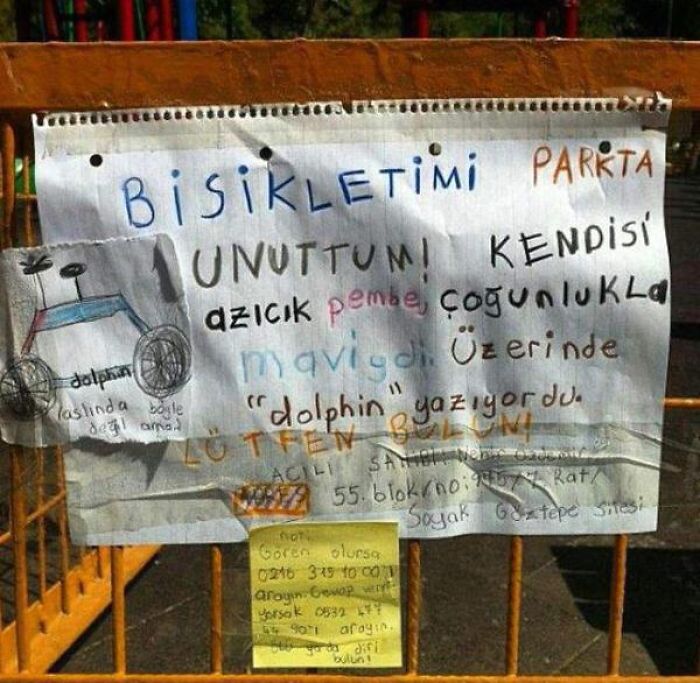 BİSİKLETİMİ PARKTA
UNUTTUM! KENDİSİ
azıcık pembe, çoğunlukla
maviydi. Üzerinde
"dolphin" yazıyordu.
LÜTFEN BULUN!
ACILI SAHİBİ:
55. blok/no: Kat/
Soyak Göztepe Sitesi
dolphin
aslında böyle
değil ama
not:
Gören olursa
0216 315 10 00'ı
arayın. Cevap
yorsak 0532 477
arayın.
ölü ya da diri
bulun!